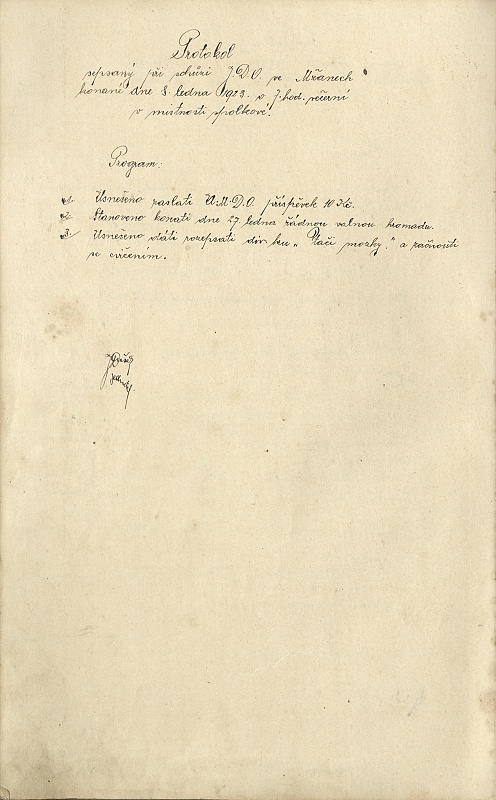 Protokol
sepsaný při schůzi J.D.O. ve Mžanech
konané dne 8. ledna 1923 o 7. hod. večerní
v místnosti spolkové.
Program:
1. Usnešeno zaslati Ú.M.D.O. příspěvek 10 Kč.
2. Stanoveno konati dne 27. ledna řádnou valnou hromadu.
3. Usnešeno dáti rozepsati div. hru „Ptačí mozky." a začnouti
se cvičením.